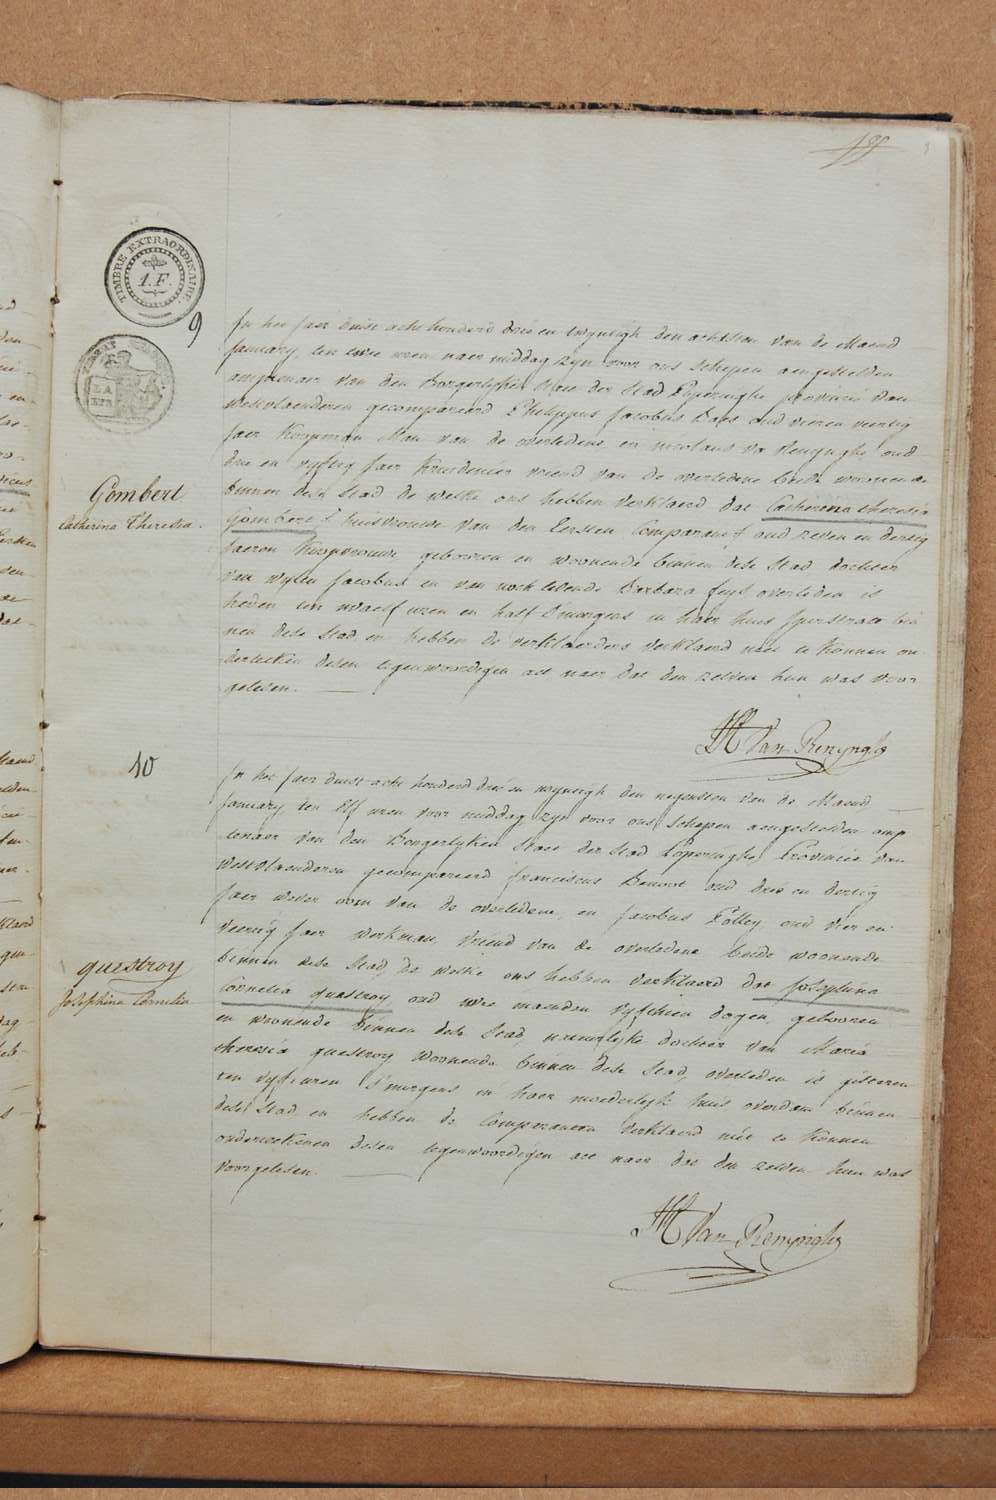 19
TIMBRE EXTRAORDINAIRE.
1.F.
9
Gombert
Catherina Theresia.
In het Jaer duist acht honderd drie en twyntigh den achtsten van de Maend
January, ten twee uren naer middag zyn voor ons schepen aengestelden
amptenaer van den Borgerlyken Staet der Stad Poperinghe provincie van
Westvlaenderen gecompareerd Philippus Jacobus Baes oud vier en veertig
Jaer Koopman Man van de overledene en nicolaus Reninghe oud
drie en vyftig Jaer Kruidenier vriend van de overledene beide woonende
binnen dese Stad de welke ons hebben verklaerd dat Catherina theresia
Gombert huisvrouwe van den Eersten Comparant oud zeven en dertig
Jaeren Koopvrouwe gebooren en woonende binnen dese Stad dochter
van wylen Jacobus en van noch levende Barbara feys overleden is
heden ten twaelf uren en half s'morgens in haer huis Iperstraet bin
nen dese Stad en hebben de verklaerders verklaerd niet te konnen on
derteeken desen tegenwoordigen act naer dat den zelven hun was voor
gelesen.
Van Renynghe
10
questroy
Josephina Cornelia
In het Jaer duist acht honderd drie en twyntigh den negensten van de Maend
January, ten Elf uren voor middag, zyn voor ons schepen aengestelden amp
tenaer van den Borgerlyken Staet der Stad Poperinghe, Provincie van
Westvlaenderen gecompareerd franciscus Benoot oud drie en dertig
Jaer wever oom van de overledene, en Jacobus Folley oud vier en
veertig Jaer werkman, vriend van de overledene beide woonende
binnen dese Stad, de welke ons hebben verklaerd dat Josephina
Cornelia questroy, oud twee maenden vyfthien dagen, gebooren
en woonende binnen dese Stad, natuerlyke dochter van Maria
theresia questroy woonende binnen dese Stad, overleden is gisteren
ten vyf uren s'morgens in haer moederlyk huis overdam binnen
dese Stad en hebben de Comparanten verklaerd niet te konnen
onderteekenen desen tegenwoordigen act naer dat den zelven hun was
voorgelesen.
Van Renynghe